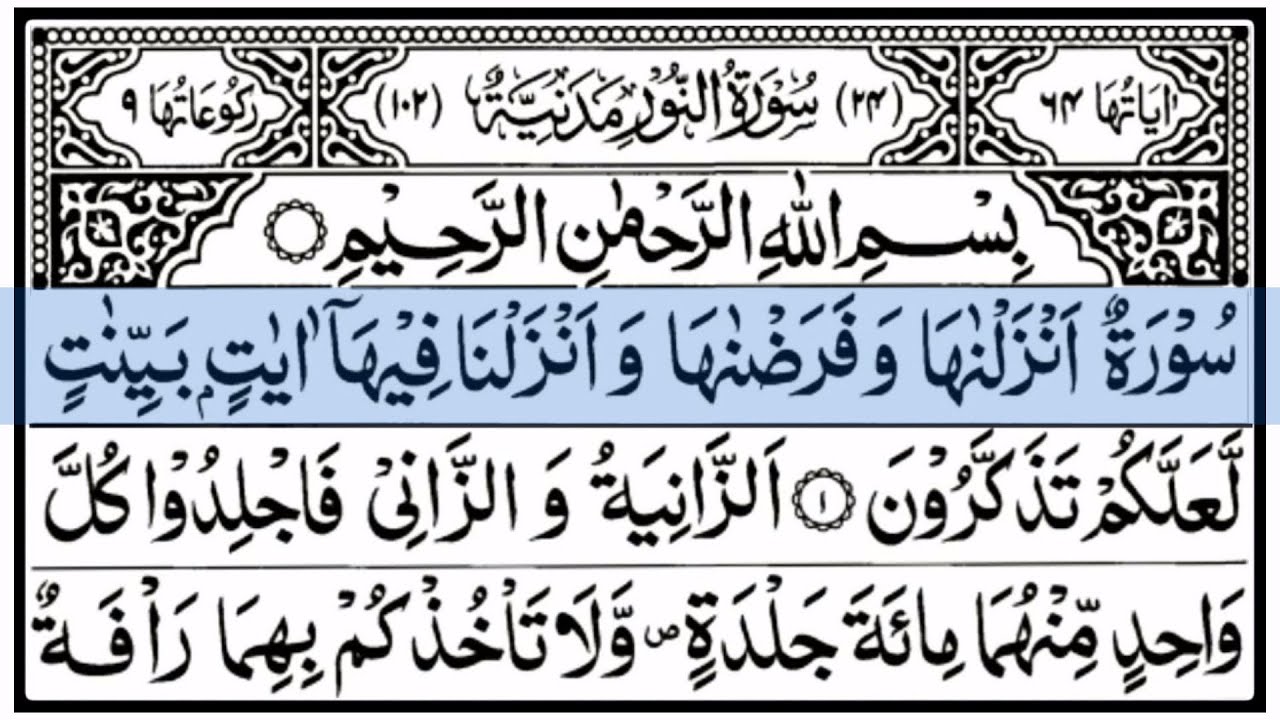 اٰيَاتُهَا ٦٤
(٢٤) سُوْرَةُ النُّوْرِ مَدَنِيَّةٌ (١٠٢)
رُكُوْعَاتُهَا ٩
بِسْمِ اللّٰهِ الرَّحْمٰنِ الرَّحِيْمِ
سُوْرَةٌ اَنْزَلْنٰهَا وَ فَرَضْنٰهَا وَ اَنْزَلْنَا فِيْهَاۤ اٰيٰتٍۭ بَيِّنٰتٍ
لَّعَلَّكُمْ تَذَكَّرُوْنَ ١ اَلزَّانِيَةُ وَ الزَّانِیْ فَاجْلِدُوْا كُلَّ
وَاحِدٍ مِّنْهُمَا مِائَةَ جَلْدَةٍ ۪ وَّلَا تَاْخُذْكُمْ بِهِمَا رَاْفَةٌ